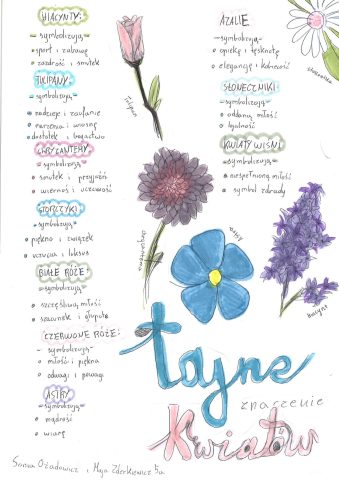 HIACYNTY:
symbolizują
sport i zabawę
zazdrość i smutek
TULIPANY:
symbolizują
nadzieję i zaufanie
marzenia i wiosnę
dostatek i bogactwo
CHRYZANTEMY:
symbolizują
smutek i przyjaźń
wierność i uczciwość
STORCZYKI:
symbolizują
piękno i związek
uczucia i luksus
BIAŁE RÓŻE:
symbolizują
szczęśliwą miłość
szacunek i
CZERWONE RÓŻE:
symbolizują
miłość i piękno
odwagi i powagi
ASTRY
symbolizują
mądrość
wiarę
AZALIE
symbolizują
opiekę i tęsknotę
elegancję i kobiecość
SŁONECZNIKI:
symbolizują
oddaną miłość
lojalność
KWIATY WIŚNI
symbolizują
niespełnioną miłość
symbol zdrady
tulipan
chryzantema
hiacynt
tajne
znaczenie
kwiatów
i Maja 5a